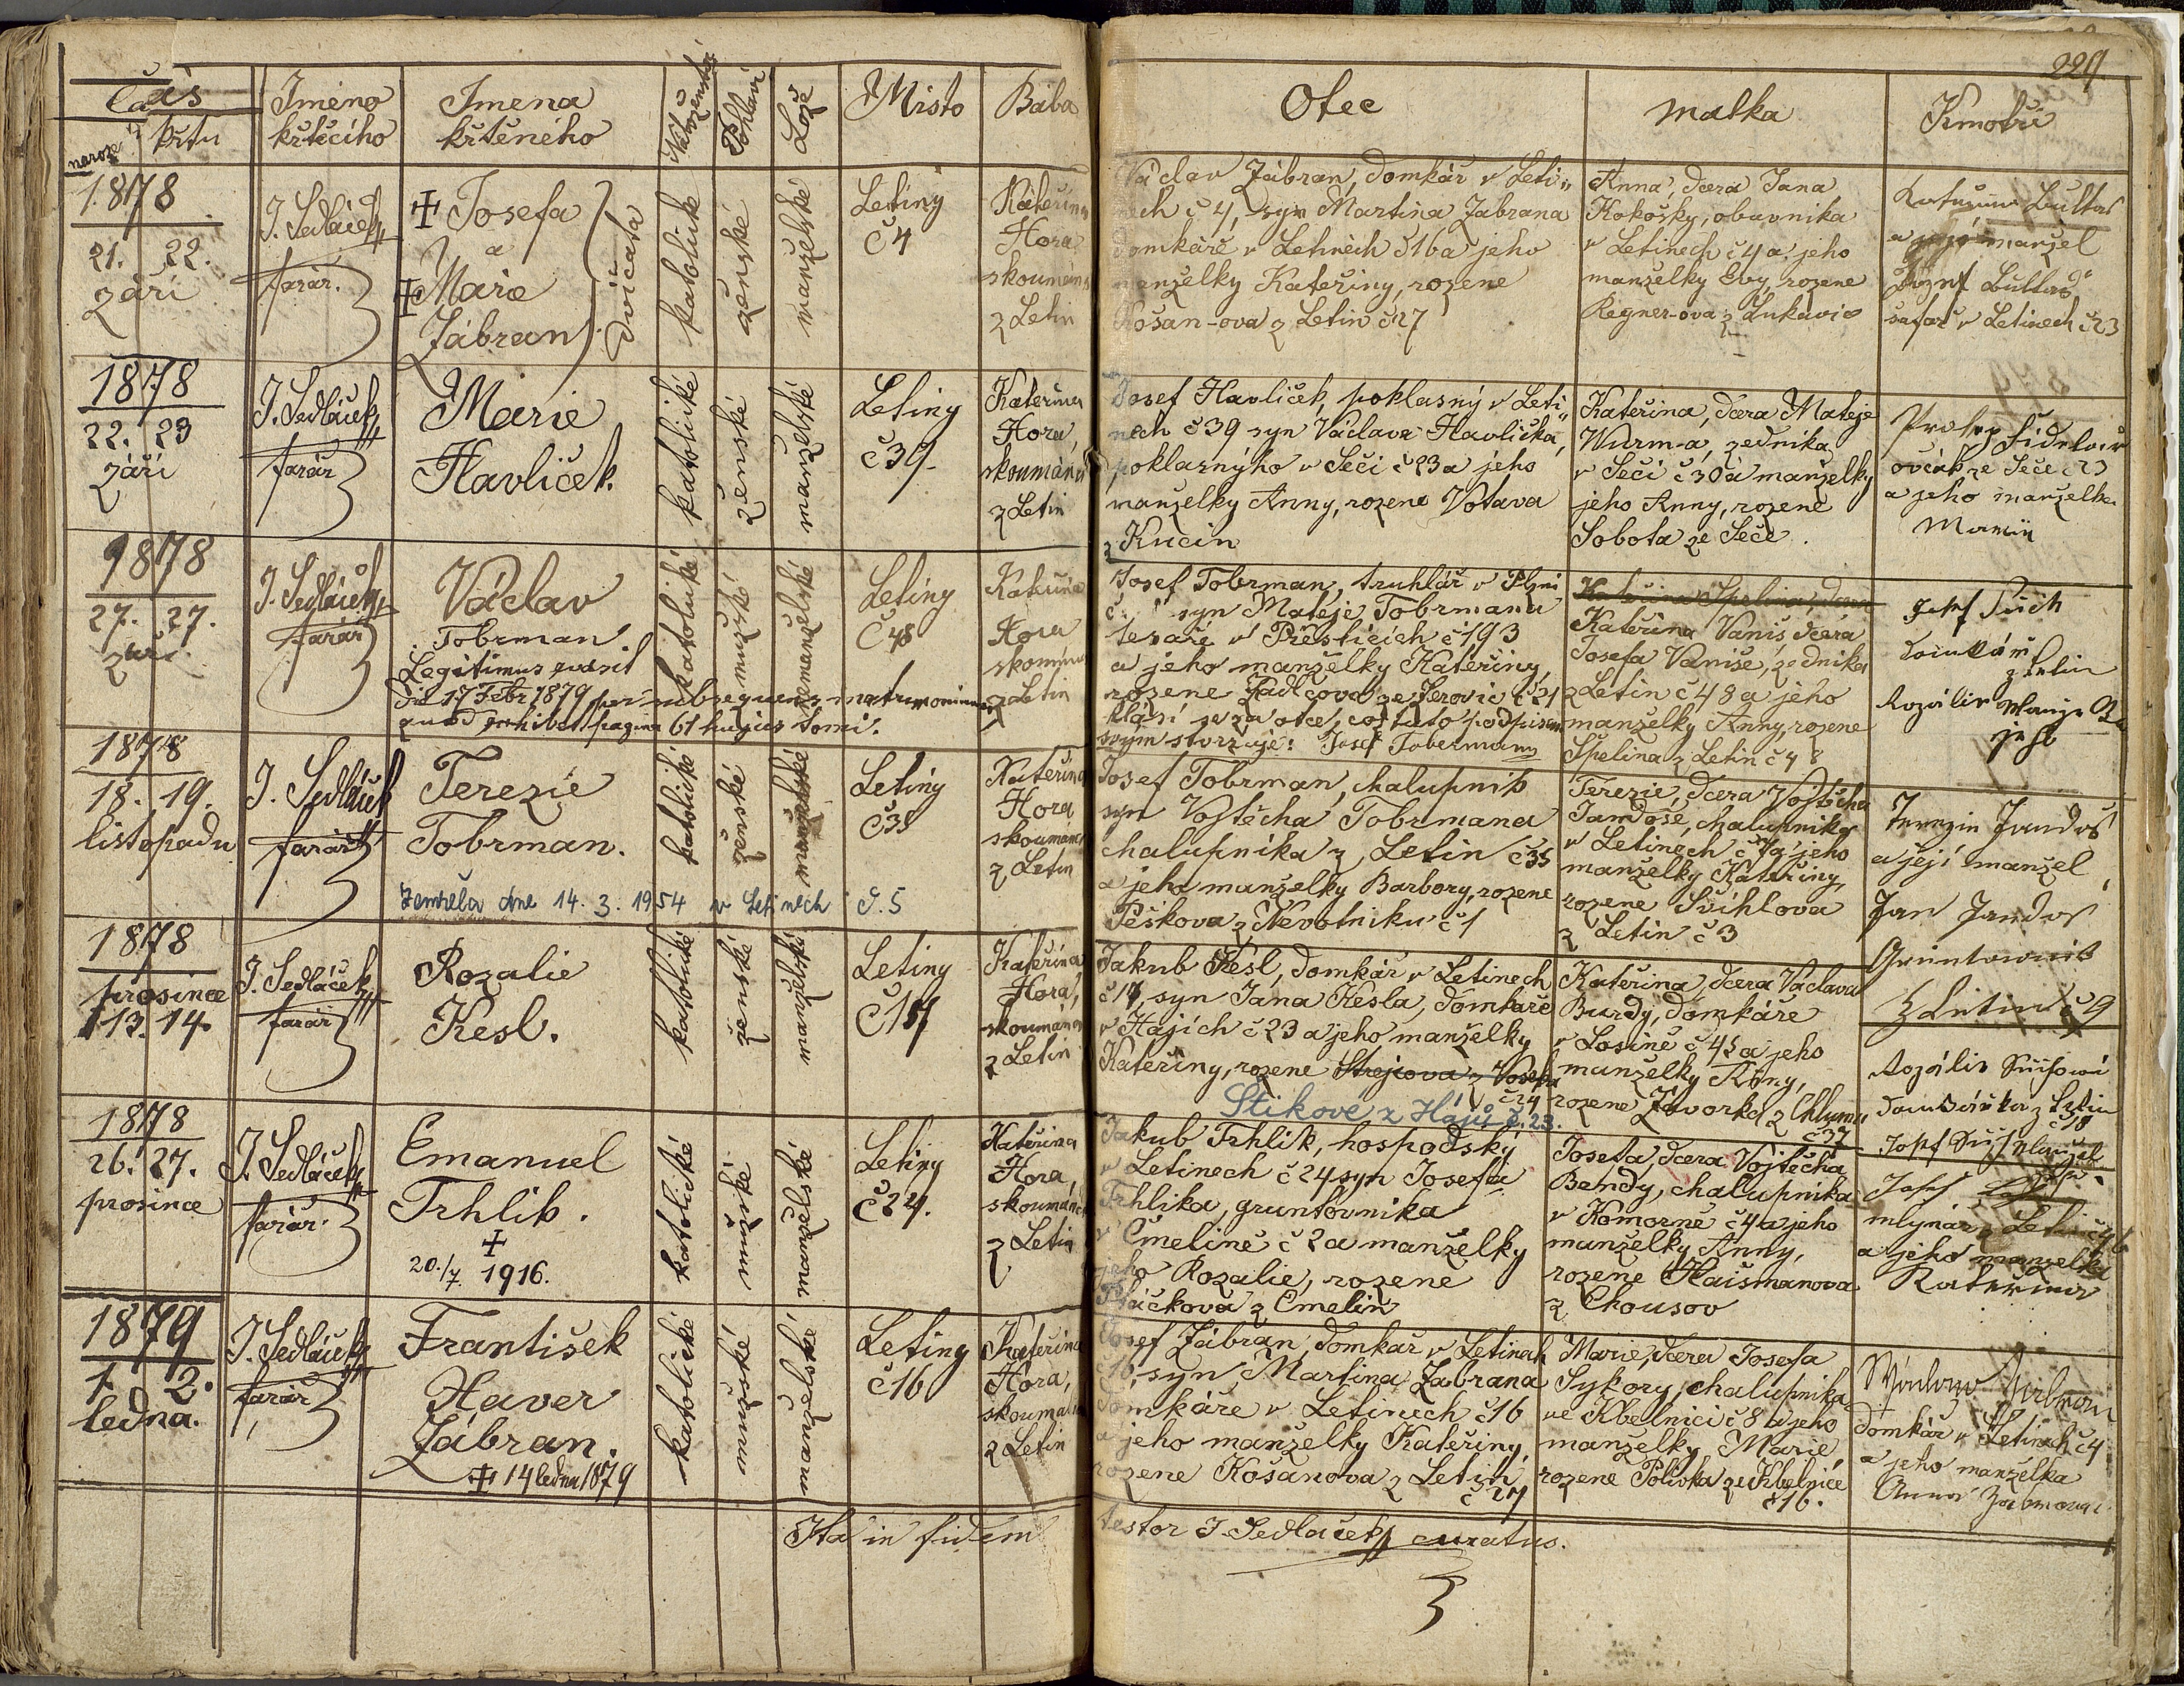 229.
Čas
naroz.
křtu
Jméno
křtěcího
Jmena
křtěného
Náboženství
Pohlaví
Lože
Místo
Bába
Otec
matka
Kmotři
1878
21. 22.
září
J. Sedláček
farář.
+ Josefa
a
+ Marie
Zábran
Dvíčata
katolické
ženské
manželské
Letiny
č 4
Kateřina
Hora
skoumaná
z Letin
Václav Zábran, domkář v Leti„
nech č 4, syn Martina Zabrana
domkáře v Letinech č 16 a jeho
manželky Kateřiny, rozene
Košan-ova z Letin č 27
Anna, dcera Jana
Kokošky, obuvnika
v Letinech č 4 a jeho
manželky Evy, rozene
Regner-ova z Lukavic
a její manžel
šafář v Letinech č 23
1878
22. 23
září
J. Sedláček
farář
Marie
Havlíček.
katolické
ženské
manželské
Letiny
č 39.
Kateřina
Hora,
skoumána
z Letin
Josef Havlíček, poklasný v Leti„
nech č 39 syn Václava Havlíčka,
poklasnýho v Seči č 23 a jeho
manželky Anny, rozene Votava
z Kucin
Kateřina, dcera Mateje
Wurm-a, zedníka
v Seči č 30 a manželky
jeho Anny, rozené
Sobota ze Seče.
Prokop
ovčák ze Seče č 23
a jeho manželka
1878
27. 27.
září
J. Sedláček
farář
Václav
Tobrman.
Legitimus evasit
die 17 Febr 1879 per subsequens matrimonium
quod exhibet pagina 61 hujus tomi.
katolické
mužské
nemanželské
Letiny
č 48
Kateřina
Hora
skoumaná
z Letin
Josef Tobrman, truhlář v Plzni
č. syn Matěje Tobrmana
tesaře v Přešticích č 193
a jeho manželky Kateřiny,
rozene Kadlcova ze Žerovic č 21
hlásí se za otce, což tuto podpisem
svým stvrzuje: Josef Tobermann
Kateřina Špelina, dcera
Kateřina Vaniš dcera
Josefa Vaniše, zedníka
z Letin č 48 a jeho
manželky Anny, rozene
Špelina z Letin č 48
Josef
domkář
z Letin
Rozálie
jeho
1878
18. 19.
listopadu
J. Sedláček
farář
Terezie
Tobrman.
Zemřela dne 14. 3. 1954 v Letinech č. 5
katolické
ženské
manželské
Letiny
č 35
Kateřina
Hora,
skoumána
z Letin
Josef Tobrman, chalupník
syn Vojtěcha Tobrmana
chalupníka z Letin č 35
a jeho manželky Barbory, rozene
Peškova z Nevotniku č 1
Terezie, dcera Vojtěcha
Jandoše, chalupníka
v Letinech č 9 a jeho
manželky Kateřiny,
rozene Švihlova
z Letin č 3
Terezie Jandoš
a její manžel
Jan Jandoš
Gruntovník
z Letin č 9
1878
prosince
13. 14.
J. Sedláček
farář
Rozalie
Kesl.
katolické
ženské
manželské
Letiny
č 17
Kateřina
Hora,
skoumána
z Letin
Jakub Kesl, domkář v Letinech
č 17, syn Jana Kesla, domkáře
v Hájích č 23 a jeho manželky
Kateřiny, rozene Strejcova z Voseka
č 24
Štikové z Hájů č. 23.
Kateřina, dcera Václava
Burdy, domkáře
v Losině č 45 a jeho
manželky Anny,
rozene Zavorka z Chlumu
č 37
Rozálie
domkářka z Letin
č 18
Josef
1878
26. 27.
prosince
J. Sedláček
farář.
Emanuel
Trhlík.
+
20./7. 1916.
katolické
mužské
manželské
Letiny
č 24.
Kateřina
Hora,
skoumána
z Letin
Jakub Trhlík, hospodský
v Letinech č 24 syn Josefa
Trhlika, gruntovnika
v Čmelině č 2 a manželky
jeho Rozalie, rozene
z Čmelin
Josefa, dcera Vojtěcha
Bendy, chalupníka
v Komorně č 4 a jeho
manželky Anny,
rozene Haišmanova
z Chousov
Josef
mlynář z Letin č 46
a jeho manželka
Kateřina
1879
1. 2.
ledna.
J. Sedláček
farář
František
Xaver
Zábran.
+ 14 ledna 1879
katolické
mužské
manželské
Letiny
č 16
Kateřina
Hora,
skoumaná
z Letin
Josef Zábran, domkář v Letinech
č 16, syn Martina Zabrana
domkáře v Letinech č 16
a jeho manželky Kateřiny,
rozene Košanova z Letin
č 27
Marie, dcera Josefa
Sykory, chalupníka
ve Kbelnici č 8 a jeho
manželky Marie
rozene Polivka ze Kbelnice
č 16.
domkář v Letinech č 4
a jeho manželka
Anna
Ita in fidem
testor J. Sedláček curatus.